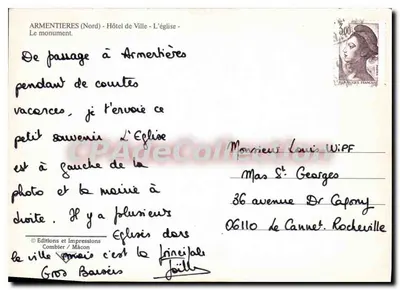 ARMENTIERES (Nord) - Hôtel de Ville - L'église -
Le monument.
De passage à Armentières
pendant de courtes
vacances, je t'envoie ce
petit souvenir. L'Eglise
est à gauche de la
photo et la mairie à
droite. Il y a plusieurs
Eglises dans
la ville mais c'est la principale
Gros Baisers Joëlle
© Editions et Impressions
Combier / Mâcon
3,00
Monsieur Louis WIPF
Mas St Georges
36 avenue Dr Capony
06110 Le Cannet. Rocheville
CPAPhil Collection